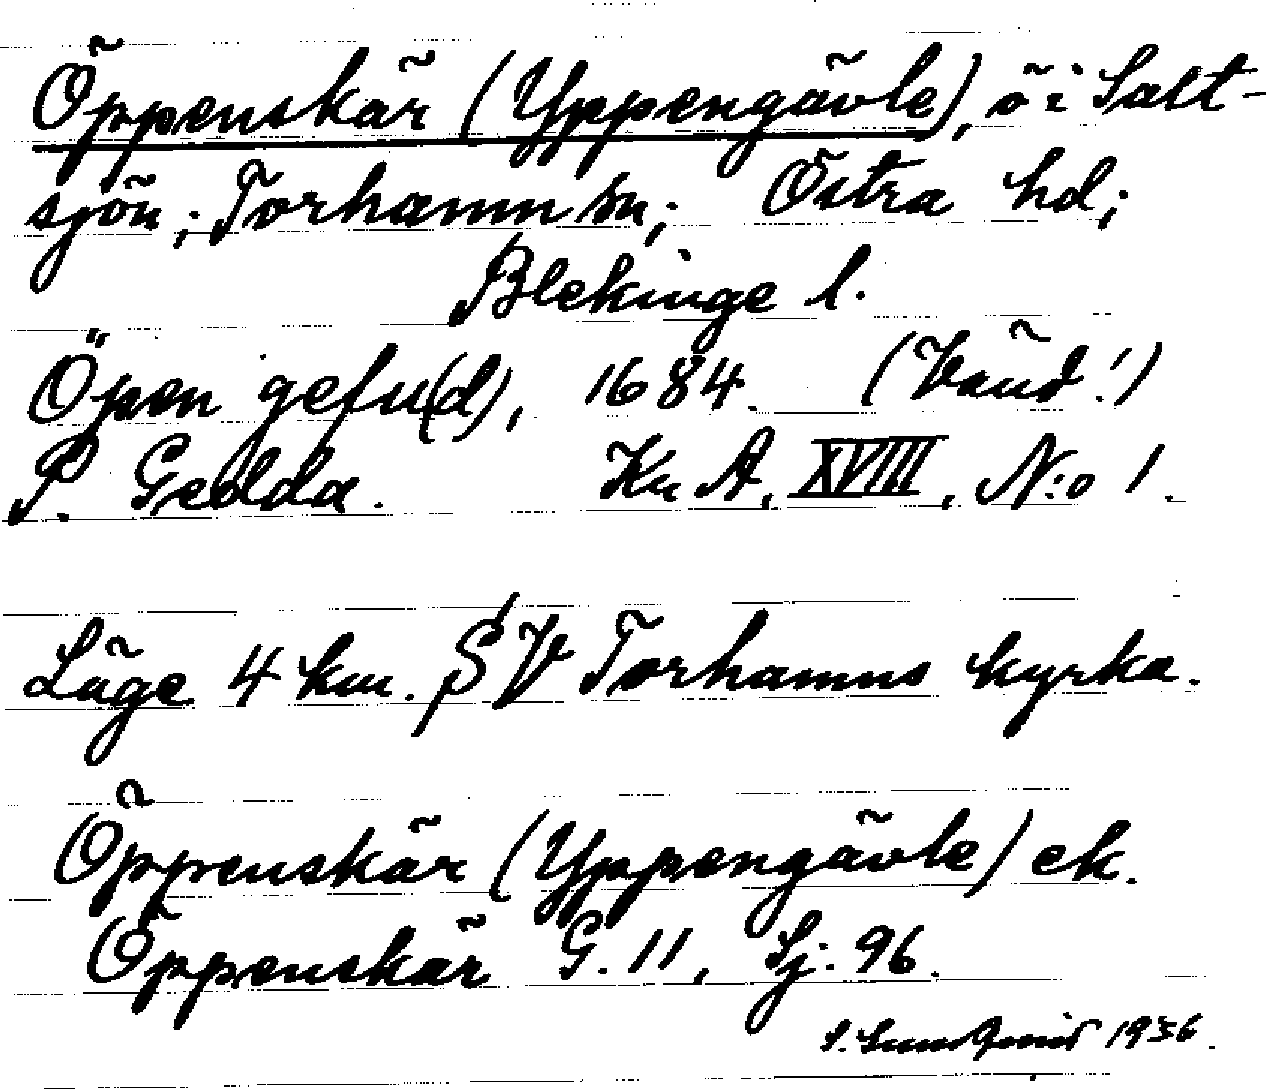 Öppenskär (Yppengävle), ö i Salt-
sjön; Torhamn sn; Östra hd;
Blekinge l.
Öpen gefu(d), 1684. (Vänd!)
P. Gedda. Kr A, XVIII, N:o 1.
Läge 4 km. SV Torhamns kyrka.
Öppenskär (Yppengävle) ek.
Öppenskär G. 11, Sj. 96.
1936.